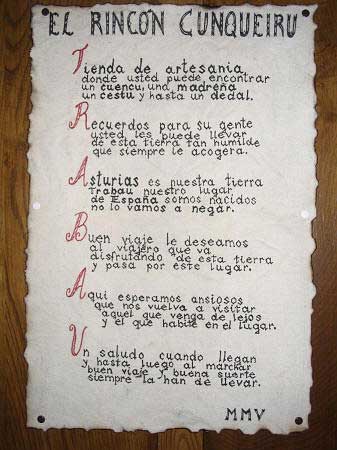 EL RINCÓN CUNQUEIRU
Tienda de artesania
donde usted puede encontrar
un cuencu, una madreña
un cestu y hasta un dedal.
Recuerdos para su gente
usted les puede llevar
de esta tierra tan humilde
que siempre le acogera.
Asturias es nuestra tierra
Trabau nuestro lugar
de España somos nacidos
no lo vamos a negar.
Buen viaje le deseamos
al viajero que va
disfrutando de esta tierra
y pasa por este lugar.
Aqui esperamos ansiosos
que nos vuelva a visitar
aquel que venga de lejos
y el que habite en el lugar.
Un saludo cuando llegan
y hasta luego al marchar
buen viaje y buena suerte
siempre la han de llevar.
MMV